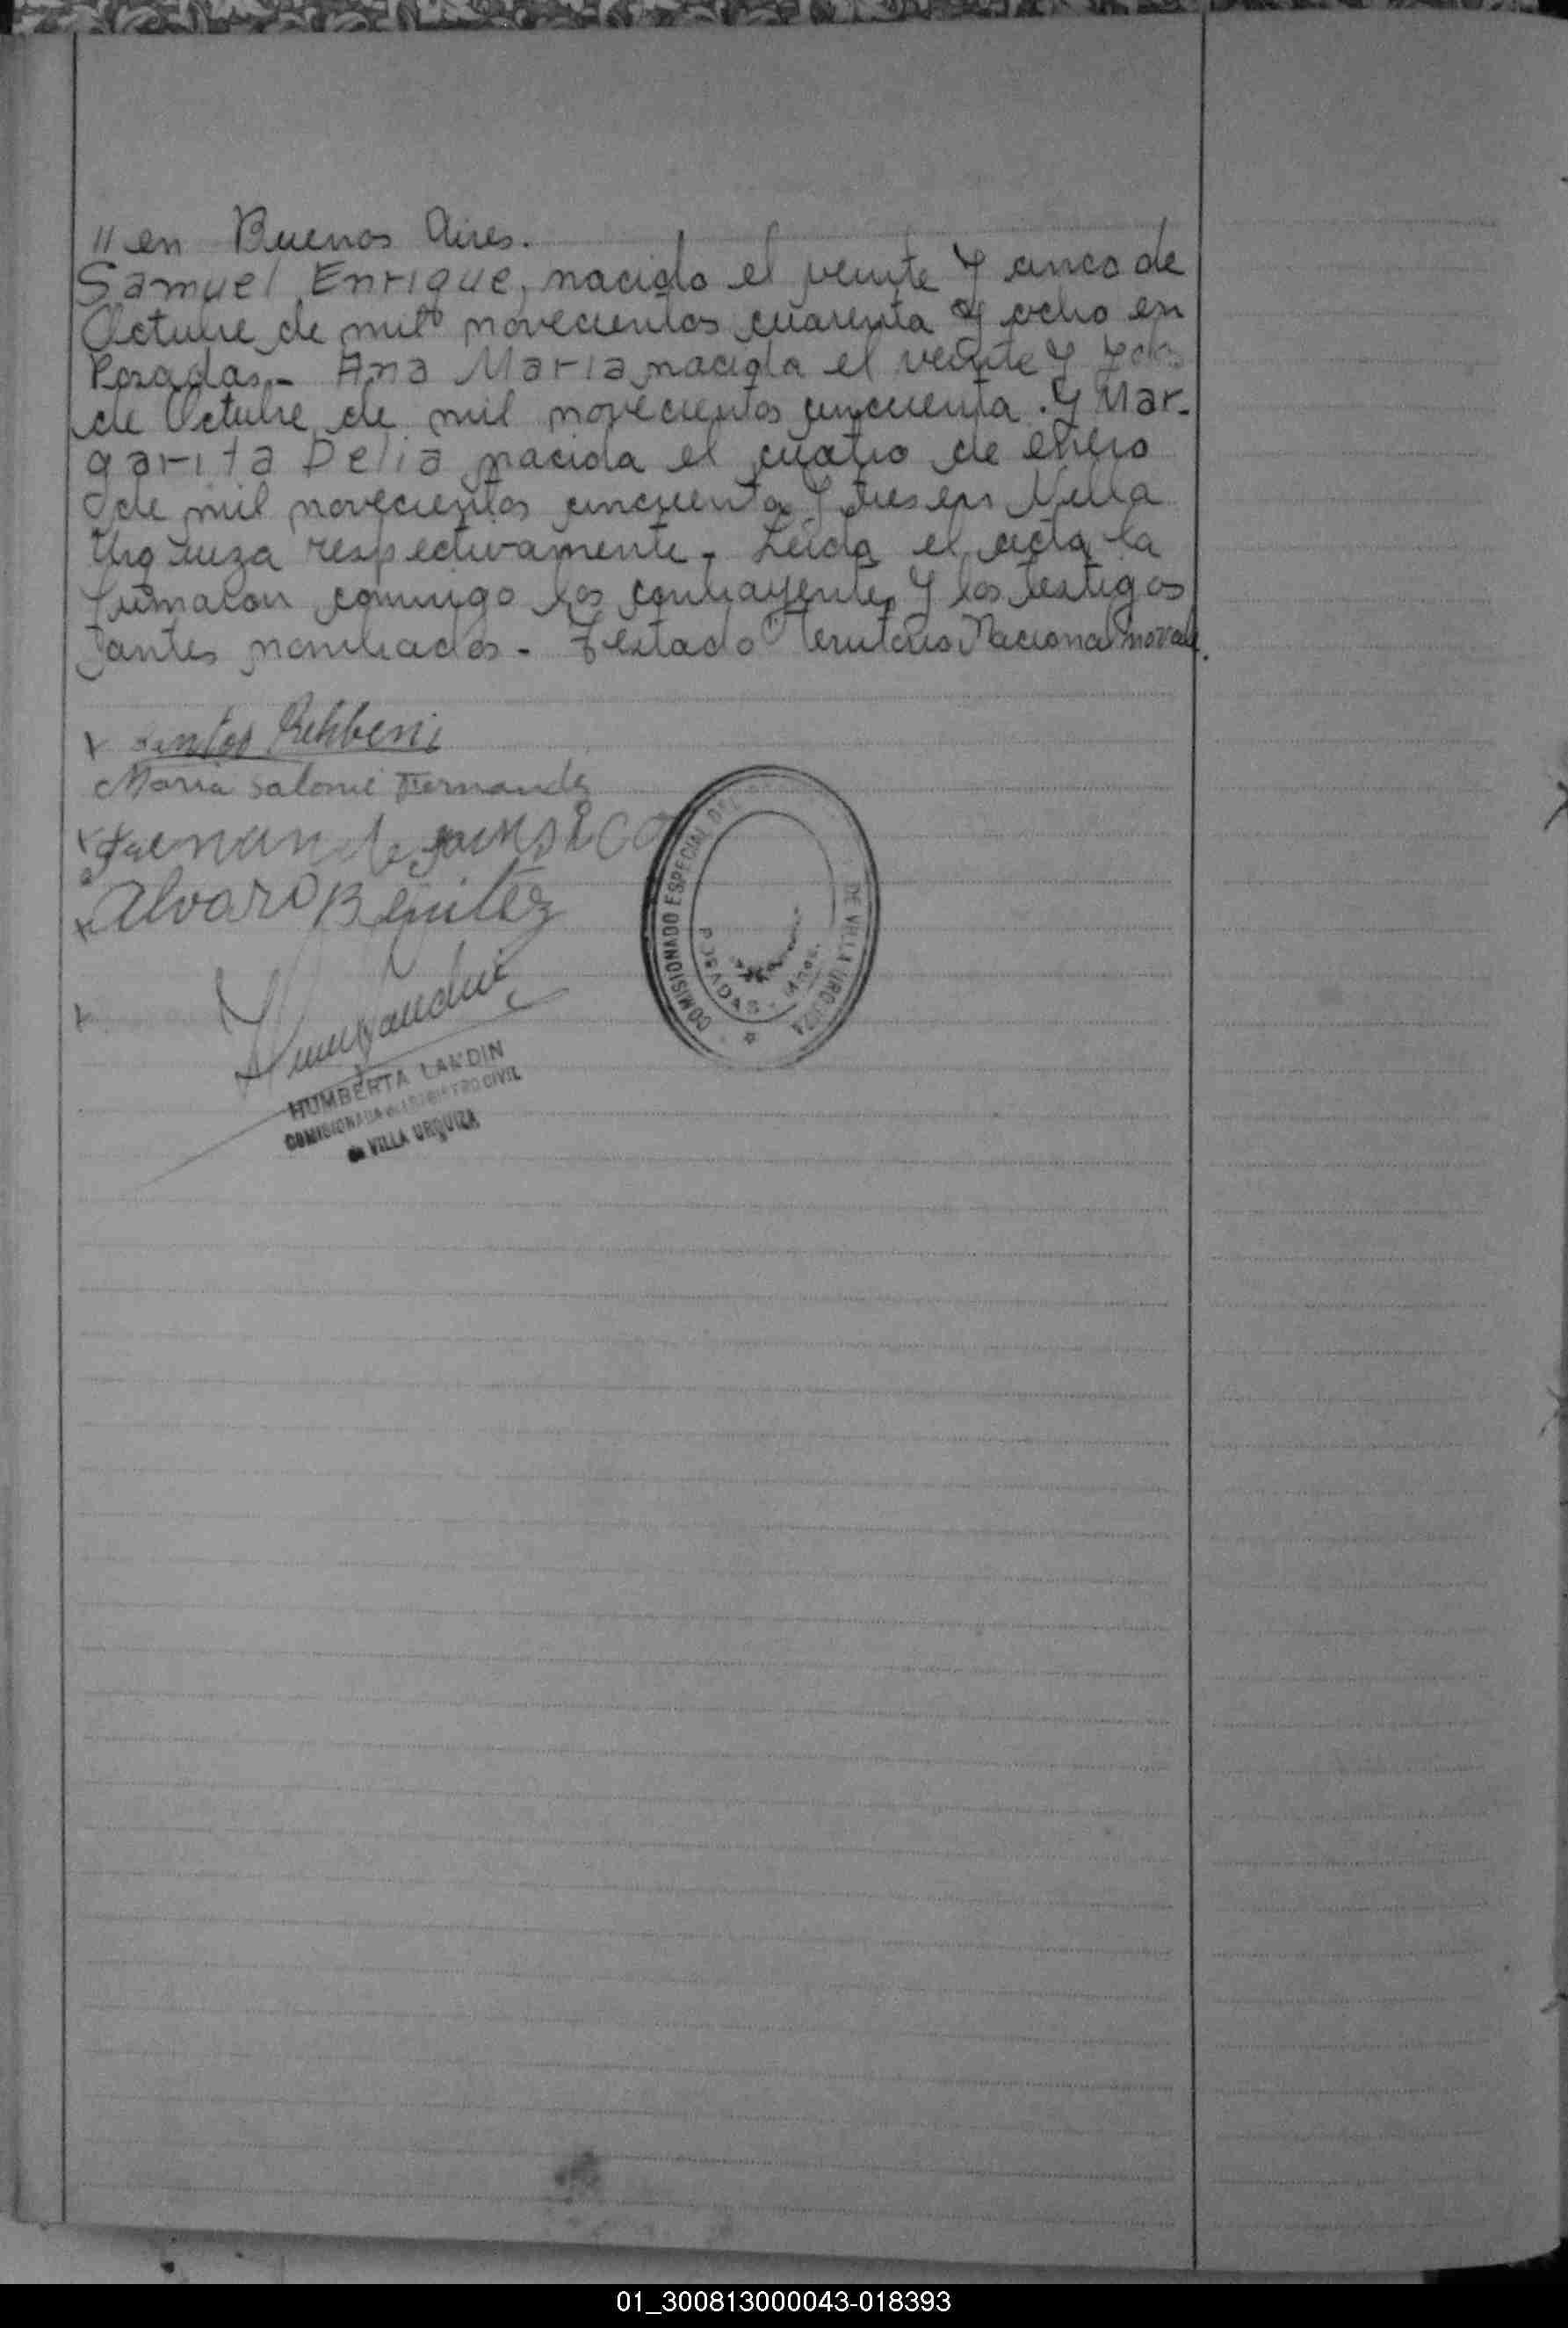 " en Buenos Aires.
Samuel Enrique, nacido el veinte y cinco de
Octubre de mil novecientos cuarenta y ocho en
Posadas.- Ana Maria nacida el veinte y
de Octubre de mil novecientos cincuenta. Y Mar-
garita Delia nacida el cuatro de enero
de mil novecientos cincuenta y tres en Villa
Urquiza respectivamente.- Leida el acta la
firmaron conmigo los contrayentes y los testigos
antes nombrados.- Testado "Territorio Nacional no vale.
x Santos
Maria Salomé Fernandez
x
x Alvaro Benitez
x
HUMBERTA LANDIN
COMISIONADA REGISTRO CIVIL
de VILLA URQUIZA
COMISIONADO ESPECIAL DEL
DE VILLA URQUIZA
01_300813000043-018393